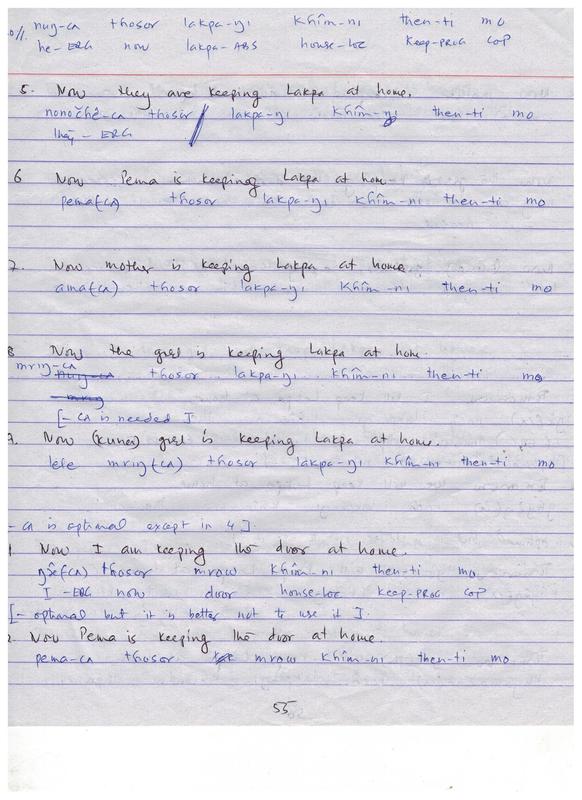 nuŋ-cʌ thosor lakpa-ŋı khîm-nı then-ti mo
he-ERG now lakpa-ABS house-loc keep-PROG COP
5. Now they are keeping Lakpa at home.
nonočhê-cʌ thosor lakpa-ŋı khîm-nı then-ti mo
they-ERG
6 Now Pema is keeping Lakpa at home
pema(-cʌ) thosor lakpa-ŋı khîm-nı then-ti mo
7. Now mother is keeping Lakpa at home
ama(-cʌ) thosor lakpa-ŋı khîm-nı then-ti mo
8 Now the girl is keeping Lakpa at home.
mrıŋ-cʌ thosor lakpa-ŋı khîm-nı then-ti mo
[-cʌ is needed]
Now girl is keeping Lakpa at home.
lele mrıŋ(-cʌ) thosor lakpa-ŋı khîm-nı then-ti mo
-cʌ is optional except in 4].
Now I am keeping the door at home.
ŋʌ̂(-cʌ) thosor mrow khîm-nı then-ti mo
I-ERG now door house-loc keep-PROG COP
[- optional but it is better not to use it].
2. Now Pema is keeping the door at home.
pema-cʌ thosor mrow khîm-nı then-ti mo
55